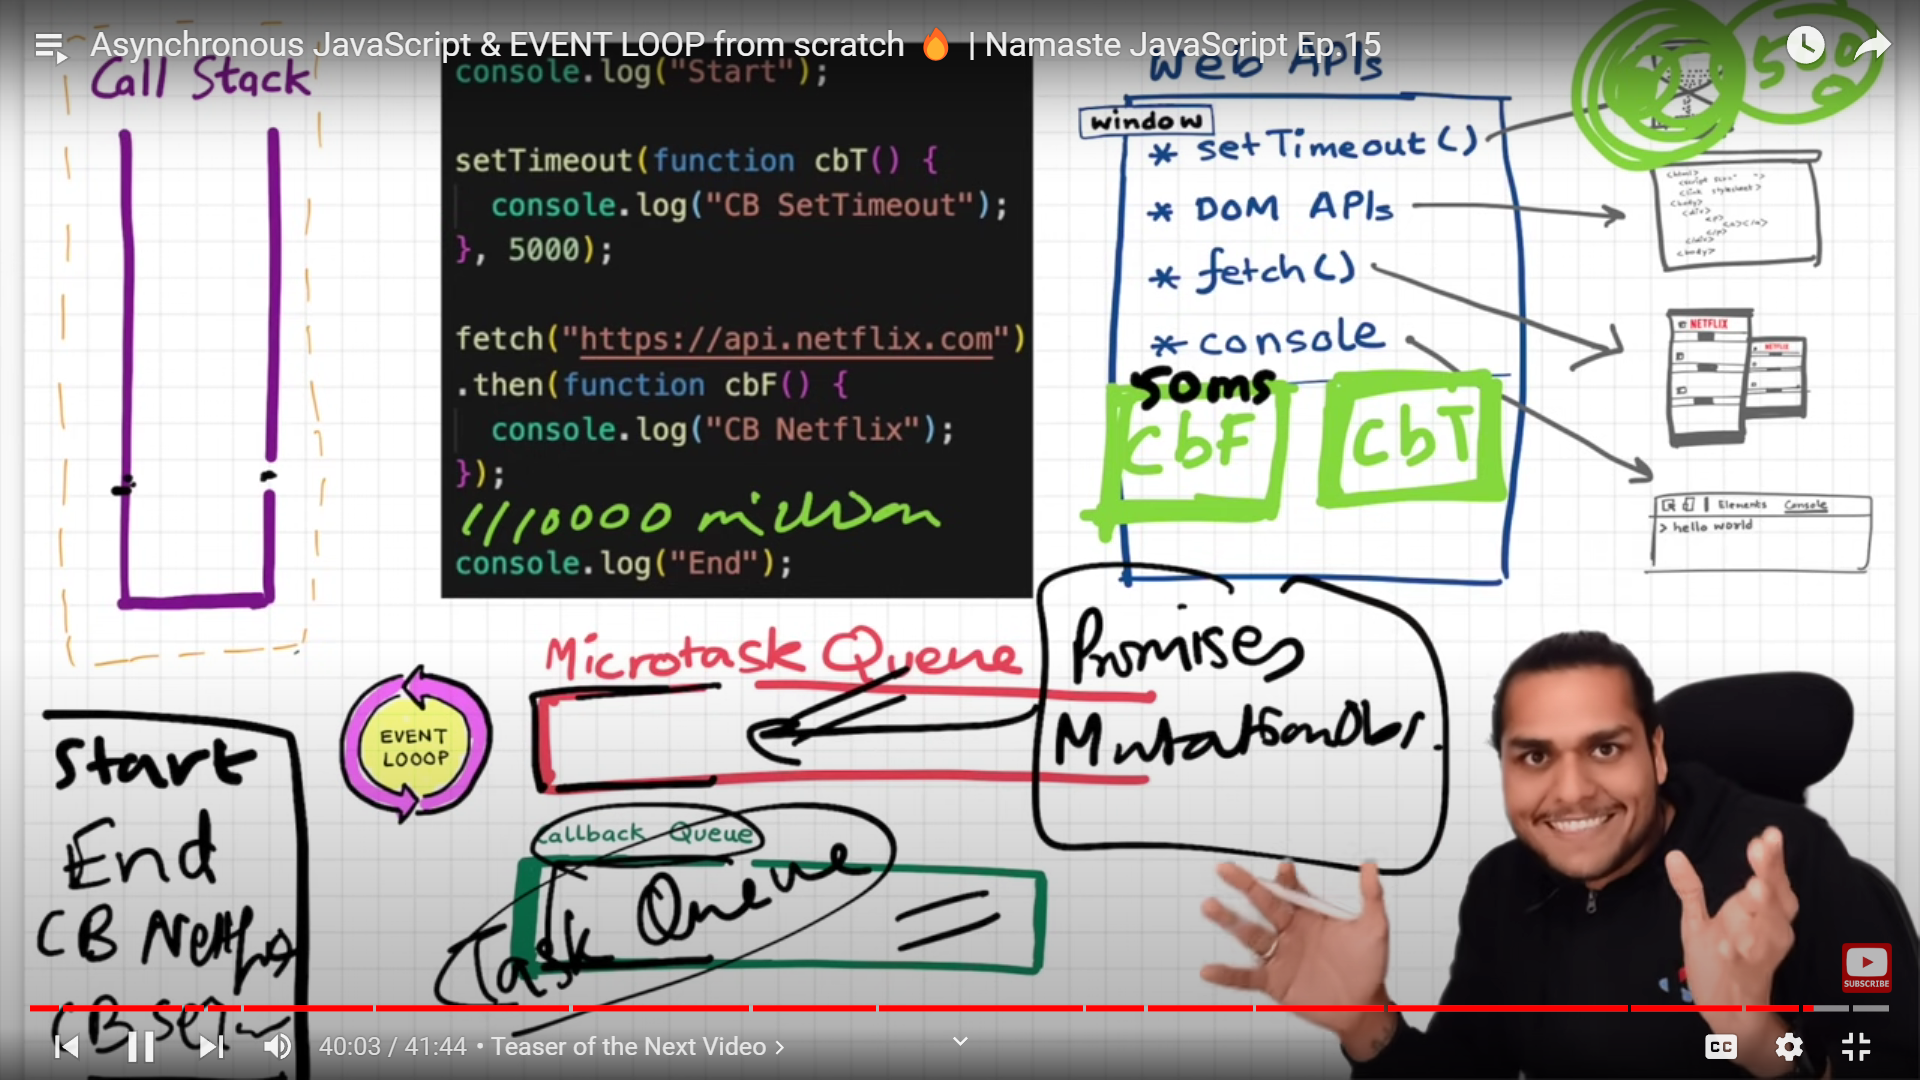 Asynchronous JavaScript & EVENT LOOP from scratch 🔥 | Namaste JavaScript Ep.15
Call Stack
console.log("Start");
setTimeout(function cbT() {
console.log("CB SetTimeout");
}, 5000);
fetch("https://api.netflix.com")
.then(function cbF() {
console.log("CB Netflix");
});
million
console.log("End");
Web APIs
window
* setTimeout()
* DOM APIs
* fetch()
* console
50ms
CbF
CbT
500
<body>
NETFLIX
NETFLIX
Elements Console
> hello world
Microtask Queue
Promises
MutationObs.
EVENT
LOOOP
Callback Queue
Task Queue
Start
End
CB Netflix
SUBSCRIBE
40:03 / 41:44 • Teaser of the Next Video >
CC